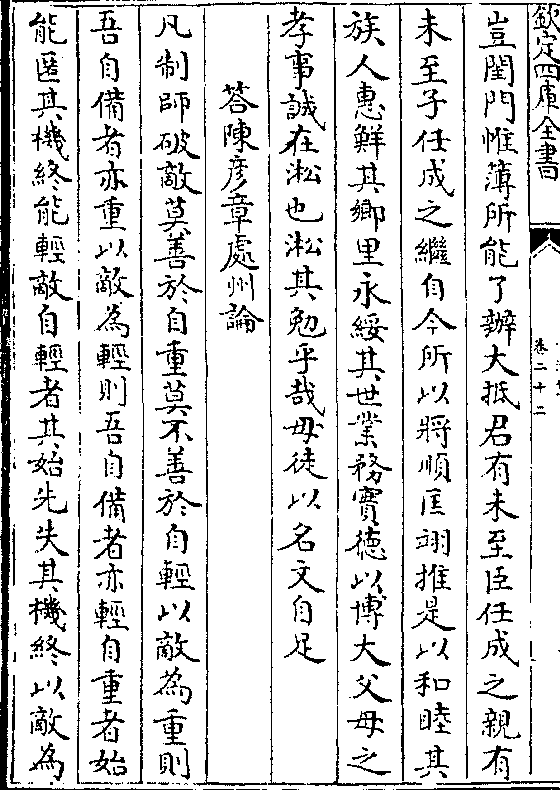 欽定四庫全書
卷二十二
豈閨門惟簿所能了辦大抵君有未至臣任成之親有
未至子任成之繼自今所以將順匡翊推是以和睦其
族人惠鮮其鄉里永綏其世業務寳徳以博大父母之
孝事誠在淞也淞其勉乎哉毋徒以名文自足
答陳彦章處州論
凡制師破敵莫善於自重莫不善於自輕以敵為重則
吾自備者亦重以敵為輕則吾自備者亦輕自重者始
能匿其機終能輕敵自輕者其始先失其機終以敵為